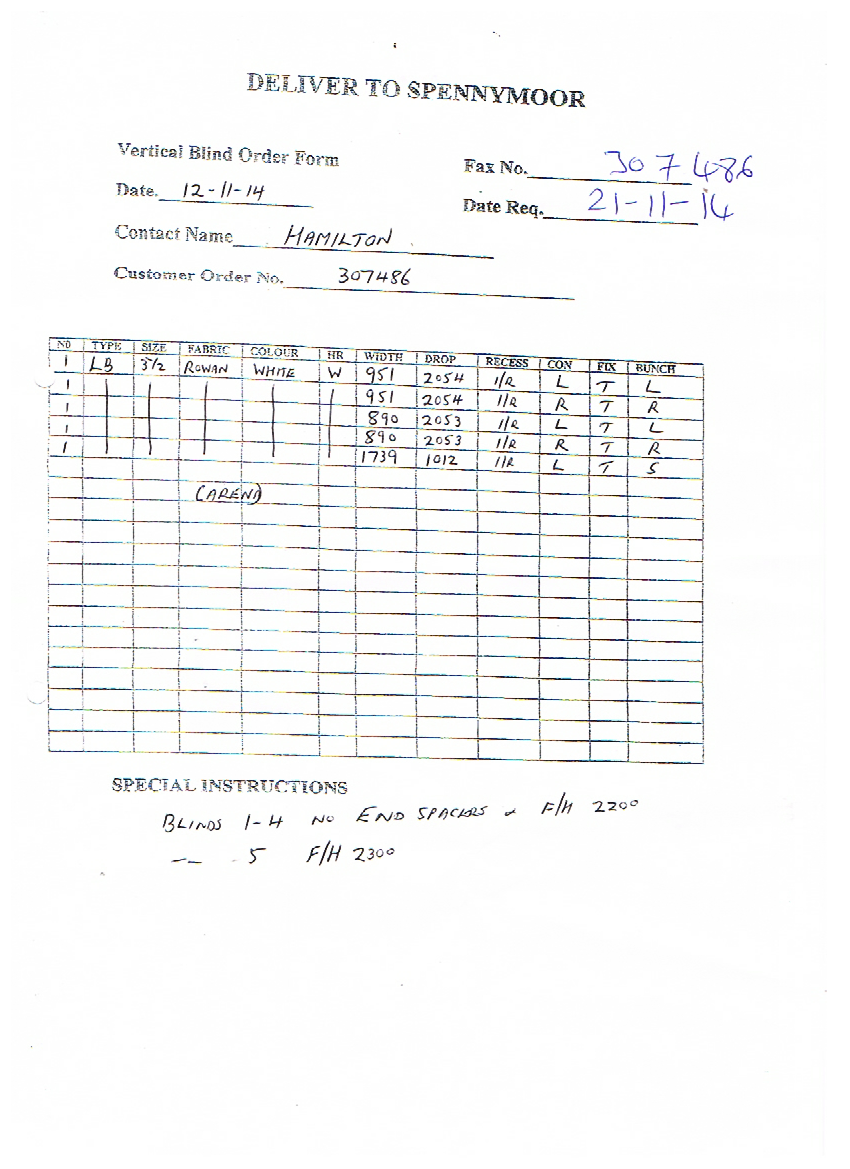 DELIVER TO SPENNYMOOR
Vertical Blind Order Form
Fax No. 307486
Date. 12-11-14
Date Req. 21-11-14
Contact Name HAMILTON
Customer Order No. 307486
NO TYPE SIZE FABRIC COLOUR HR WIDTH DROP RECESS CON FIX BUNCH
1 LB 3½ ROWAN WHITE W 951 2054 I/R L T L
1 951 2054 I/R R T R
1 890 2053 I/R L T L
1 890 2053 I/R R T R
1 1739 1012 I/R L T S
(ARENA)
SPECIAL INSTRUCTIONS
BLINDS 1-4 NO END SPACERS + F/H 2200
-- 5 F/H 2300